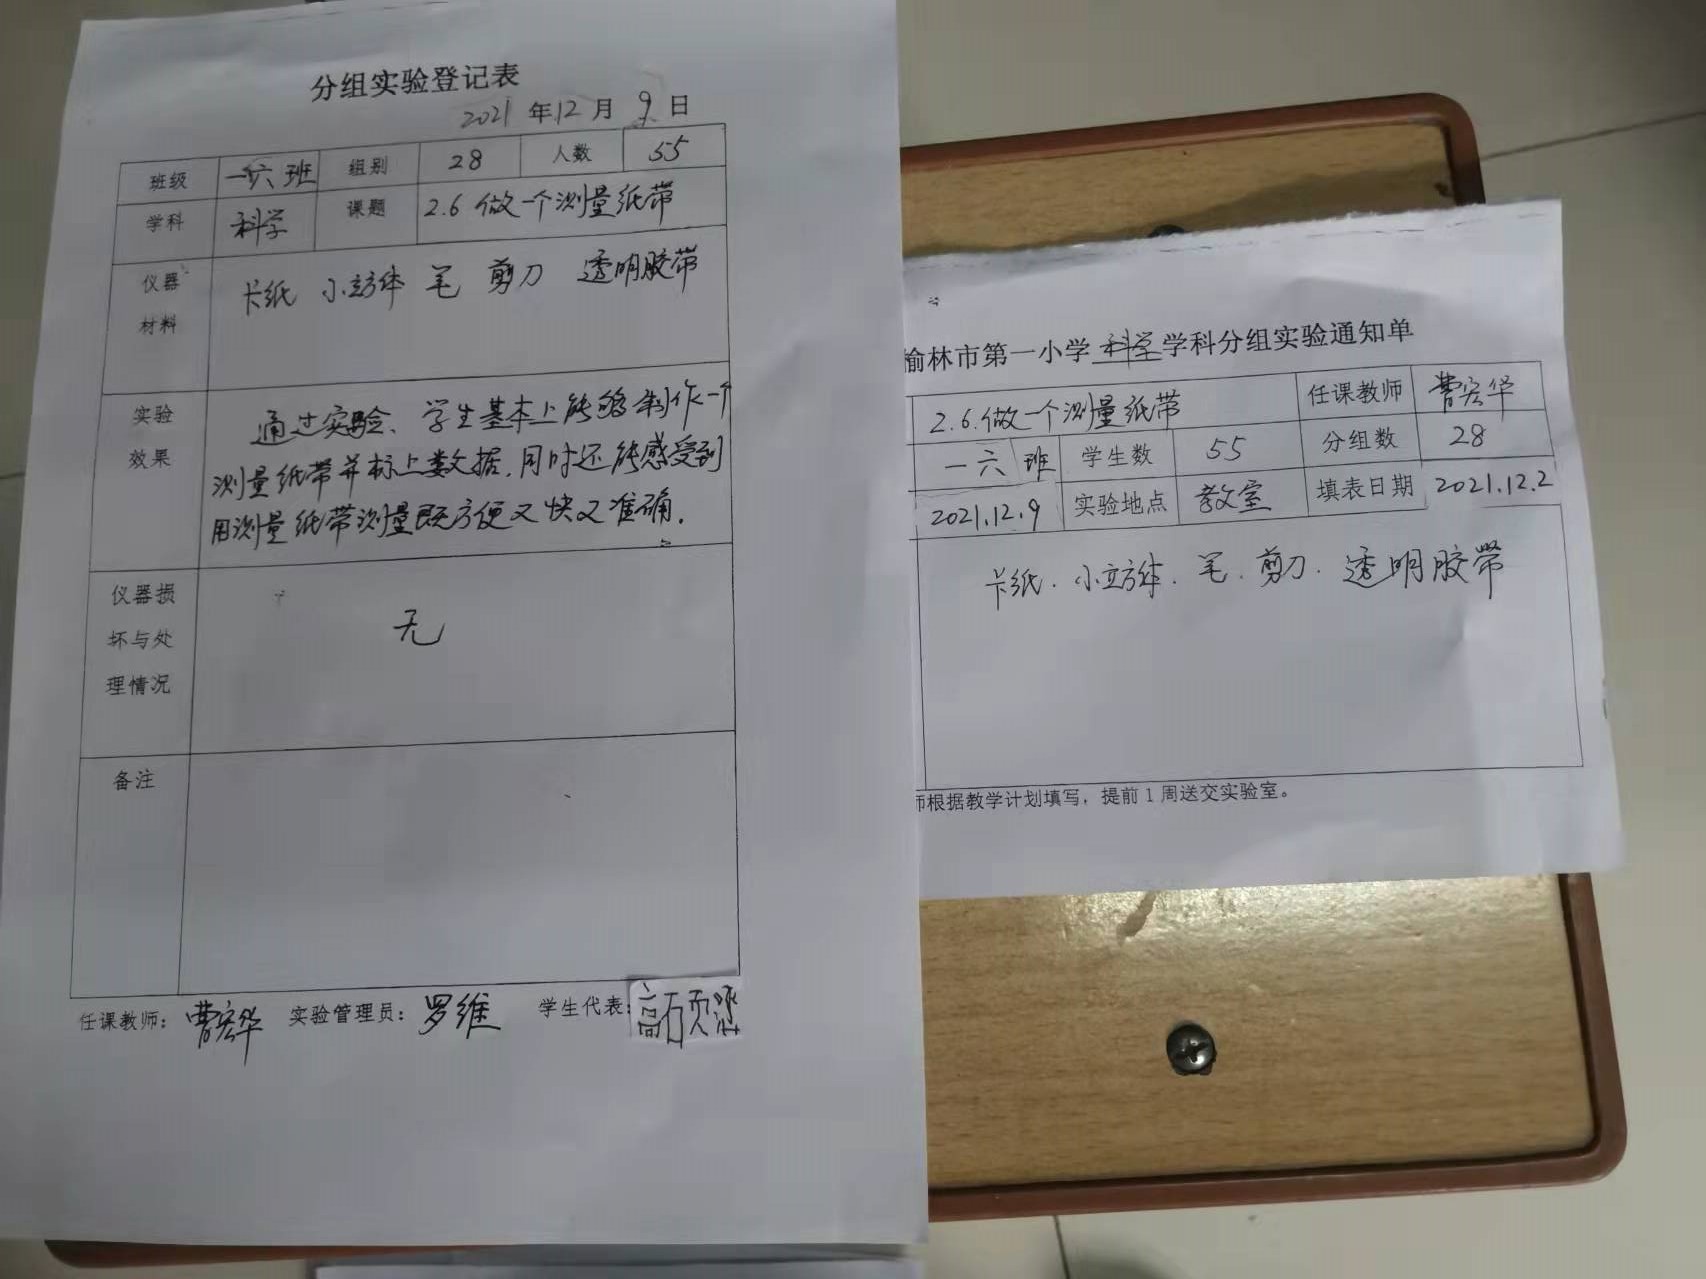 分组实验登记表
2021 年 12 月 9 日
班级 一六班 组别 28 人数 55
学科 科学 课题 2.6 做一个测量纸带
仪器材料 卡纸 小立方体 笔 剪刀 透明胶带
实验效果
通过实验、学生基本上能够制作一个
测量纸带并标上数据,同时还能感受到
用测量纸带测量既方便又快又准确.
仪器损坏与处理情况 无
备注
任课教师: 曹宏华 实验管理员: 罗维 学生代表:
榆林市第一小学 科学 学科分组实验通知单
2.6.做一个测量纸带 任课教师 曹宏华
一六 班 学生数 55 分组数 28
2021.12.9 实验地点 教室 填表日期 2021.12.2
卡纸. 小立方体. 笔. 剪刀. 透明胶带
师根据教学计划填写,提前1周送交实验室。